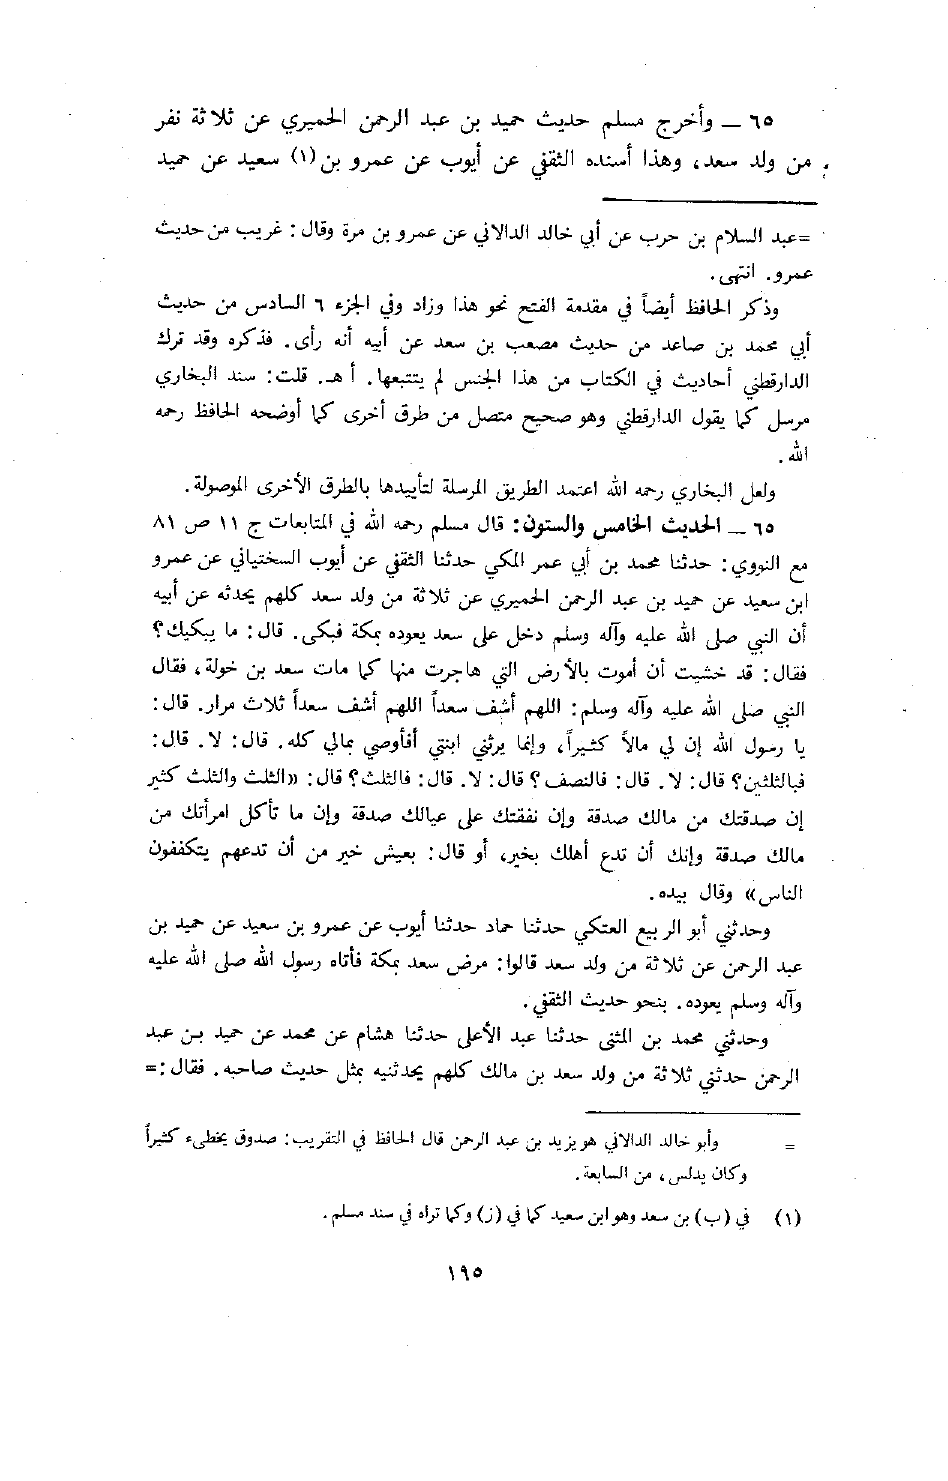 ٦٥ ــ وأخرج مسلم حديث حميد بن عبد الرحمن الحميري عن ثلاثة نفر
من ولد سعد، وهذا أسنده الثقفي عن أيوب عن عمرو بن(١) سعيد عن حميد
=عبد السلام بن حرب عن أبي خالد الدالاني عن عمرو بن مرة وقال: غريب من حديث
عمرو. انتهى.
وذكر الحافظ أيضاً في مقدمة الفتح نحو هذا وزاد وفي الجزء ٦ السادس من حديث
أبي محمد بن صاعد من حديث مصعب بن سعد عن أبيه أنه رأى. فذكره وقد ترك
الدارقطني أحاديث في الكتاب من هذا الجنس لم يتتبعها. أ هـ. قلت: سند البخاري
مرسل كما يقول الدارقطني وهو صحيح متصل من طرق أخرى كما أوضحه الحافظ رحمه
الله.
ولعل البخاري رحمه الله اعتمد الطريق المرسلة لتأييدها بالطرق الأخرى الموصولة.
٦٥ ــ الحديث الخامس والستون: قال مسلم رحمه الله في المتابعات ج ١١ ص ٨١
مع النووي: حدثنا محمد بن أبي عمر المكي حدثنا الثقفي عن أيوب السختياني عن عمرو
ابن سعيد عن حميد بن عبد الرحمن الحميري عن ثلاثة من ولد سعد كلهم يحدثه عن أبيه
أن النبي صلى الله عليه وآله وسلم دخل على سعد يعوده بمكة فبكى. قال: ما يبكيك؟
فقال: قد خشيت أن أموت بالأرض التي هاجرت منها كما مات سعد بن خولة، فقال
النبي صلى الله عليه وآله وسلم: اللهم أشف سعداً اللهم أشف سعداً ثلاث مرار. قال:
يا رسول الله إن لي مالاً كثيراً، وإنما يرثني ابنتي أفأوصي بمالي كله. قال: لا. قال:
فبالثلثين؟ قال: لا. قال: فالنصف؟ قال: لا. قال: فالثلث؟ قال: «الثلث والثلث كثير
إن صدقتك من مالك صدقة وإن نفقتك على عيالك صدقة وإن ما تأكل امرأتك من
مالك صدقة وإنك أن تدع أهلك بخير، أو قال: بعيش خير من أن تدعهم يتكففون
الناس» وقال بيده.
وحدثني أبو الربيع العتكي حدثنا حماد حدثنا أيوب عن عمرو بن سعيد عن حميد بن
عبد الرحمن عن ثلاثة من ولد سعد قالوا: مرض سعد بمكة فأتاه رسول الله صلى الله عليه
وآله وسلم يعوده. بنحو حديث الثقفي.
وحدثني محمد بن المثنى حدثنا عبد الأعلى حدثنا هشام عن محمد عن حميد بن عبد
الرحمن حدثني ثلاثة من ولد سعد بن مالك كلهم يحدثنيه بمثل حديث صاحبه. فقال:=
= وأبو خالد الدالاني هو يزيد بن عبد الرحمن قال الحافظ في التقريب: صدوق يخطىء كثيراً
وكان يدلس، من السابعة.
(١) في (ب) بن سعد وهو ابن سعيد كما في (ز) وكما تراه في سند مسلم.
١٩٥